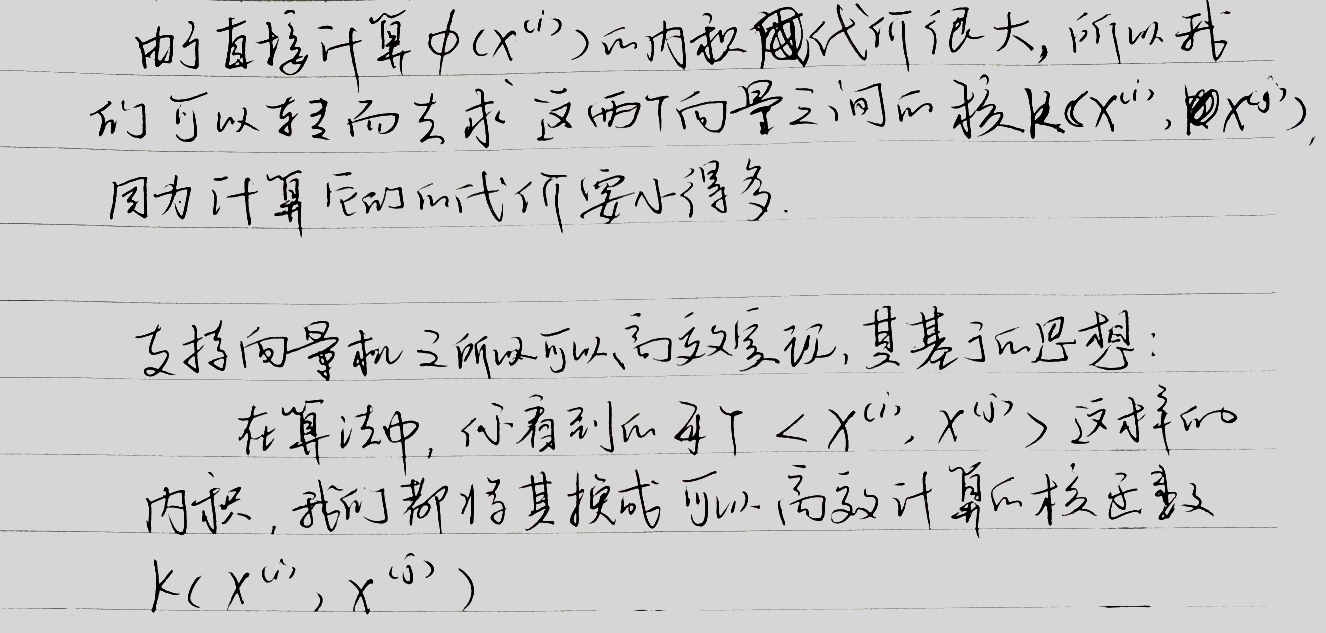 由于直接计算φ(x⁽ⁱ⁾)的内积代价很大,所以我
们可以转而去求这两个向量之间的核K(x⁽ⁱ⁾, x⁽ʲ⁾),
因为计算它们的代价要小得多.
支持向量机之所以可以高效实现,其基于的思想:
在算法中,你看到的每个<x⁽ⁱ⁾, x⁽ʲ⁾>这样的
内积,我们都将其换成可以高效计算的核函数
K(x⁽ⁱ⁾, x⁽ʲ⁾)